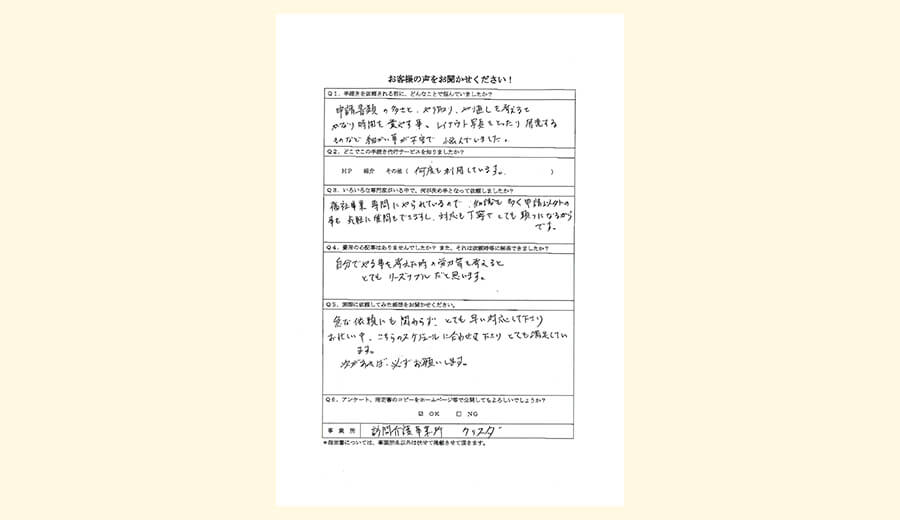 お客様の声をお聞かせください！
Q1．手続きを依頼される前に、どんなことで悩んでいましたか？
申請書類の多さと、やり取り、見通しを考えると
かなり時間を費やす事。レイアウト写真をとったり用意する
ものなど細かい事が不安で悩んでいました。
Q2．どこでこの手続き代行サービスを知りましたか？
HP 紹介 その他（ 何度も利用しています。 ）
Q3．いろいろな専門家がいる中で、何が決め手となって依頼しましたか？
福祉事業専門にやられているので、知識も多く申請以外の
事も気軽に質問もできますし、対応も丁寧でとても頼りになるから
です。
Q4．費用の心配事はありませんでしたか？また、それは依頼時等に解消できましたか？
自分でやる事を考えた時の労力等を考えると
とてもリーズナブルだと思います。
Q5．実際に依頼してみた感想をお聞かせください。
急な依頼にも関わらず、とても早い対応して下さり
お忙しい中、こちらのスケジュールに合わせて下さりとても満足してい
ます。
次があれば、必ずお願いします。
Q6．アンケート、指定書のコピーをホームページ等で公開してもよろしいでしょうか？
☑ OK □ NG
事業所 訪問介護事業所 クリスタ
*指定書については、事業所名以外は伏せて掲載させて頂きます。